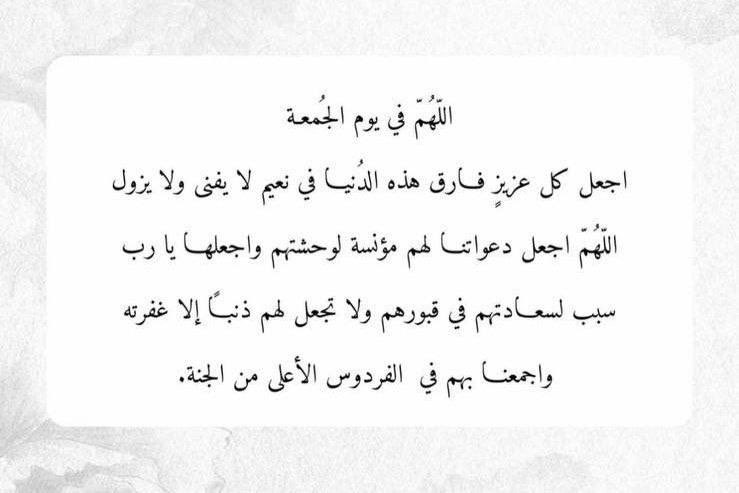 اللّهُمّ في يوم الجُمعة
اجعل كل عزيزٍ فارق هذه الدُنيا في نعيم لا يفنى ولا يزول
اللّهُمّ اجعل دعواتنا لهم مؤنسة لوحشتهم واجعلها يا رب
سبب لسعادتهم في قبورهم ولا تجعل لهم ذنباً إلا غفرته
واجمعنا بهم في الفردوس الأعلى من الجنة.